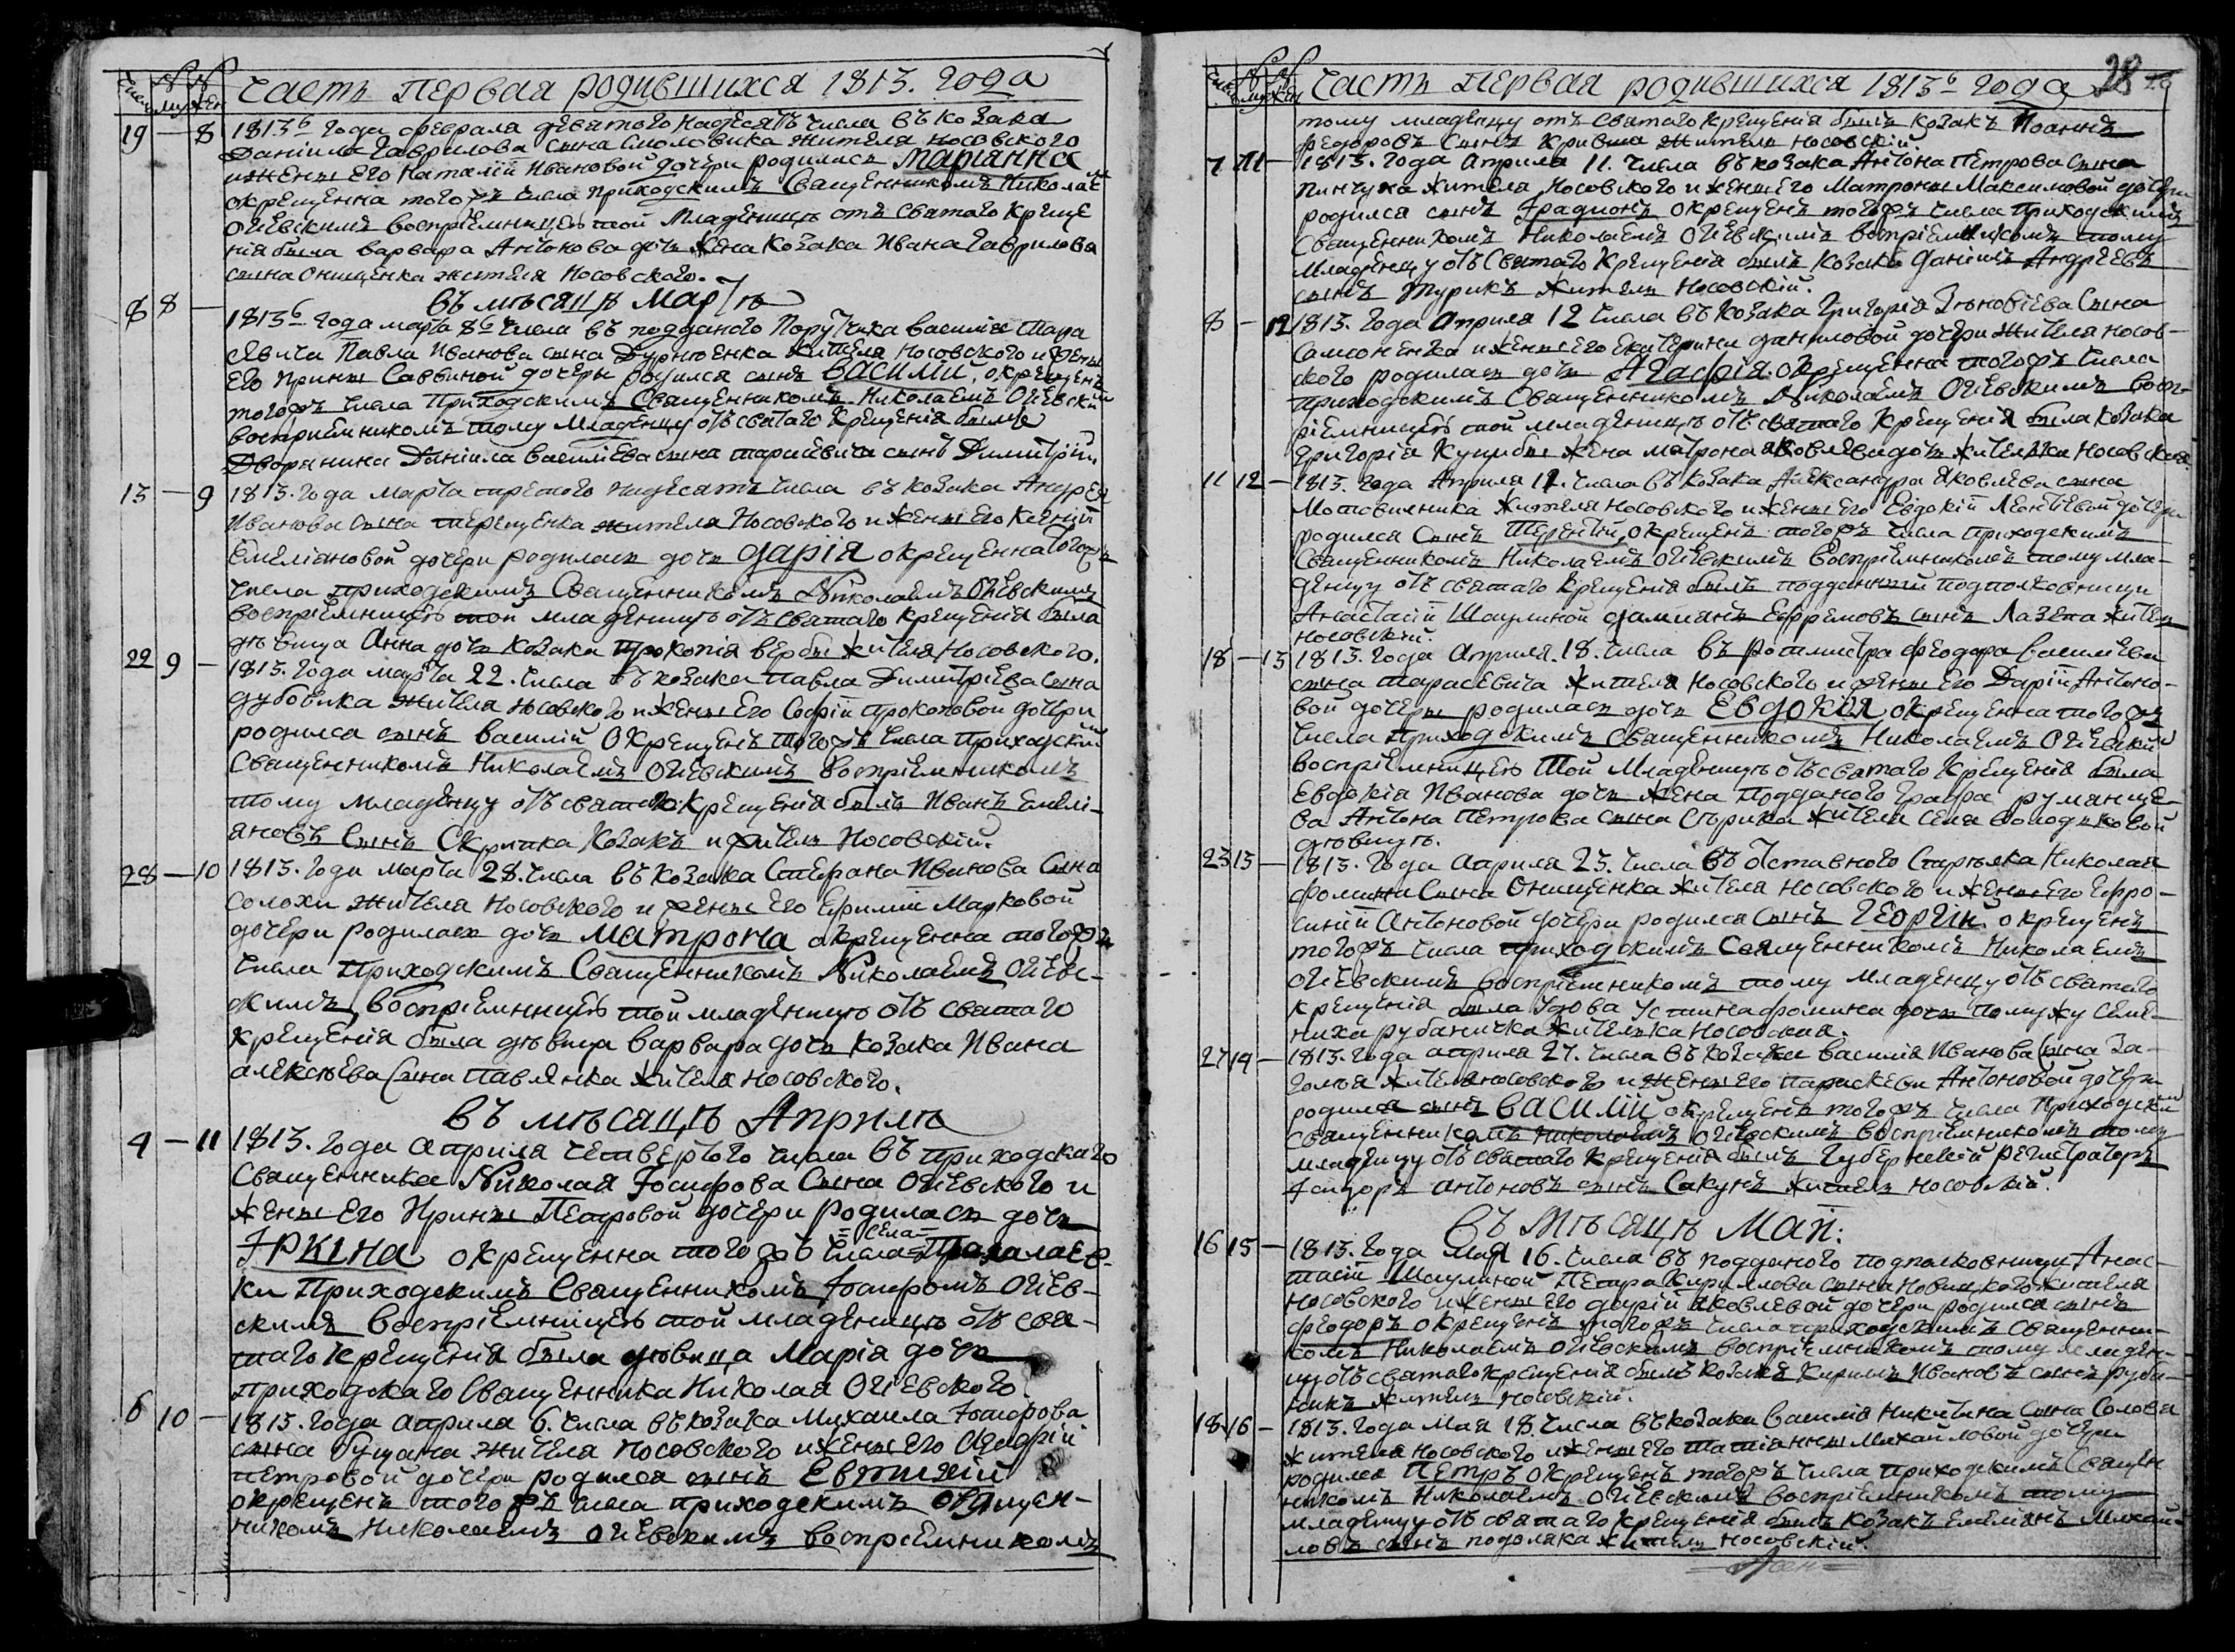 Числ № муж № жен Часть Первая родившихся 1813. года
19 — 8 1813го года февраля девятого надесять числа въ козака
Даніила Гаврилова сына Смоловика жителя Носовского
и жены его Наталіи Ивановой дочери родилась Маріанна
окрещенна того жъ числа приходскимъ Священникомъ Николаемъ
Огіевскимъ воспріемницею той Младеницѣ отъ Святаго Креще
нія была Варвара Антонова дочь жена Козака Ивана Гаврилова
сына Онищенка жителя Носовского.
въ мѣсяцѣ Мартѣ
8 8 — 1813го года марта 8го числа въ подданого Поручика Василія Тара
севича Павла Иванова сына Дурнѣенка жителя Носовского и жены
его Ирины Саввиной дочеры родился сынъ Василій, окрещенъ
того жъ числа Приходскимъ Священникомъ Николаемъ Огіевский
воспріемникомъ тому Младенцу отъ святаго Крещенія былъ
Дворянина Даніила Василіева сына Тарасѣвича сынъ Димитрій
13 — 9 1813. года Марта третого надесять числа въ козака Андрея
Иванова сына Терещенка жителя Носовского и жены его Ксеніи
Емеліановой дочери родилась дочь Дарія окрещенна тогожъ
числа приходскимъ Священникомъ Николаемъ Огіевскимъ
воспріемницею той младеницѣ отъ святаго крещенія была
дѣвица Анна дочь козака Прокопія Вербы жителя Носовского.
22 9 — 1813. года марта 22. числа въ козака Павла Димитріева сына
Дубовика жителя Носовского и жены его Софіи Прокоповой дочери
родился сынъ Василій окрещенъ того жъ числа Приходский
Священникомъ Николаемъ Огіевскимъ воспріемникомъ
тому младенцу отъ святаго крещенія былъ Иванъ Емелі-
яновъ Сынъ Скрипка Козакъ и житель Носовскій.
28 — 10 1813. года марта 28. числа въ козака Стефана Иванова Сына
Солохи жителя Носовского и жены его Ефиміи Марковой
дочери родилась дочь Матрона окрещенна того жъ
числа Приходскимъ Священникомъ Николаемъ Огіевс-
кимъ, воспріемницею той младеницѣ отъ святаго
крещенія была дѣвица Варвара дочь козака Ивана
Алексѣева Сына Павленка жителя Носовского.
въ мѣсяцѣ Априлѣ
4 — 11 1813. года Априля четвертого числа въ приходскаго
Священника Николая Іосифова Сына Огіевского и
жены его Ирины Петровой дочери родилась дочь
Іркіна окрещенна того жъ числа =села=
ки Приходскимъ Священникомъ Іосифомъ Огіев-
скимъ воспріемницею той младеницѣ отъ свя-
таго крещенія была дѣвица Марія дочь
приходскаго Священника Николая Огіевского.
6 10 — 1813. года Априля 6. числа въ козака Михаила Іосифова
сына Буцана жителя Носовского и жены его Агафіи
Петровой дочери родился сынъ Евтихій
окрещенъ того жъ числа приходскимъ Священ-
никомъ Николаемъ Огіевскимъ воспріемникомъ
Числ № муж № жен Часть Первая родившихся 1813го года 28
тому младенцу отъ святаго крещенія былъ козакъ Иоаннъ
Федоровъ Сынъ Кривша житель Носовскій.
7 11 — 1813. года Априля 11. числа въ козака Антона Петрова сына
Пинчука жителя Носовского и жены его Матроны Максимовой дочери
родился сынъ Ірадионъ окрещенъ того жъ числа Приходскимъ
Священникомъ Николаемъ Огіевскимъ воспріемникомъ тому
Младенцу отъ Святаго Крещенія былъ козакъ Даніилъ Андреевъ
сынъ Турикъ житель Носовскій.
8 — 12 1813. года Априля 12 числа въ козака Григорія Зѣновіева Сына
Самоненка и жены его Екатерины Даниловой дочери жителя носов-
ского родилась дочь Агафія. окрещенна того жъ числа
приходскимъ Священникомъ Николаемъ Огіевскимъ восп-
ріемницею той младеницѣ отъ святаго крещенія была козака
Григорія Куцибы жена Матрона Яковлева дочь жителька Носовская.
11 12 — 1813. года Априля 12. числа въ козака Александра Яковлева сына
Мотовиленка жителя Носовского и жены его Евдокіи Леонтіевой дочери
родился Сынъ Терентій, окрещенъ того жъ числа приходскимъ
Священникомъ Николаемъ Огіевскимъ воспріемникомъ тому мла-
денцу отъ святаго крещенія былъ подданный подполковници
Анастасіи Шаулиной Даміянъ Ефремовъ сынъ Лазета жител
носовскій.
18 — 13 1813. года Априля. 18. числа въ ротмистра Феодора Василіева
сына Тарасевича жителя Носовского и жены его Даріи Антоно-
вой дочеры родилась дочь Евдокія окрещенна того жъ
числа Приходскимъ Священникомъ Николаемъ Огіевский
воспріемницею той Младеницѣ отъ святаго Крещенія была
Евдокія Иванова дочь жена подданого Графа румянце-
ва Антона Петрова сына Сѣрика жителя села Володковой
дѣвицѣ.
23 13 — 1813. года Априля 23. числа въ Отставного Стрѣлка Николая
Фомина Сына Онищенка жителя Носовского и жены его Ефро-
синіи Антоновой дочери родился сынъ Георгій окрещенъ
того жъ числа приходскимъ Священникомъ Николаемъ
Огіевскимъ воспріемникомъ тому младенцу отъ святаго
крещенія была удова Устина Фомина дочь по мужу Семе-
ниха рубаничка жителька Носовская.
27 14 — 1813. года Априля 27. числа въ козака Василія Иванова Сына За-
голюя жителя носовского и жены его Параскевы Антоновой дочери
родился сынъ Василій окрещенъ того жъ числа Приходский
Священникомъ Николаемъ Огіевскимъ воспріемникомъ тому
младенцу отъ святаго крещенія былъ Губернскій Регистраторъ
Ісидоръ Антоновъ сынъ Сакунъ житель носовскій.
въ Мѣсяцѣ Маѣ:
16 15 — 1813. года Мая 16. числа въ подданого подполковници Анас-
тасіи Шаулиной Петра Кириллова сына Новицкого жителя
Носовского и жены его Даріи Яковлевой дочери родился сынъ
Феодоръ окрещенъ того жъ числа приходскимъ Священни-
комъ Николаемъ Огіевскимъ воспріемникомъ тому младен-
цу отъ святаго крещенія былъ козакъ Кирилъ Ивановъ сынъ руба-
никъ житель Носовскій.
18 16 — 1813. года Мая 18. числа въ козака Василія Никитина сына Соловя
жителя Носовского и жены его Татіянны Михайловой дочери
родился Петръ окрещенъ того жъ числа приходскимъ Священ
никомъ Николаемъ Огіевскимъ воспріемникомъ тому
младенцу отъ святаго крещенія былъ козакъ Емеліянъ Михай-
ловъ сынъ подоляка житель Носовскій.